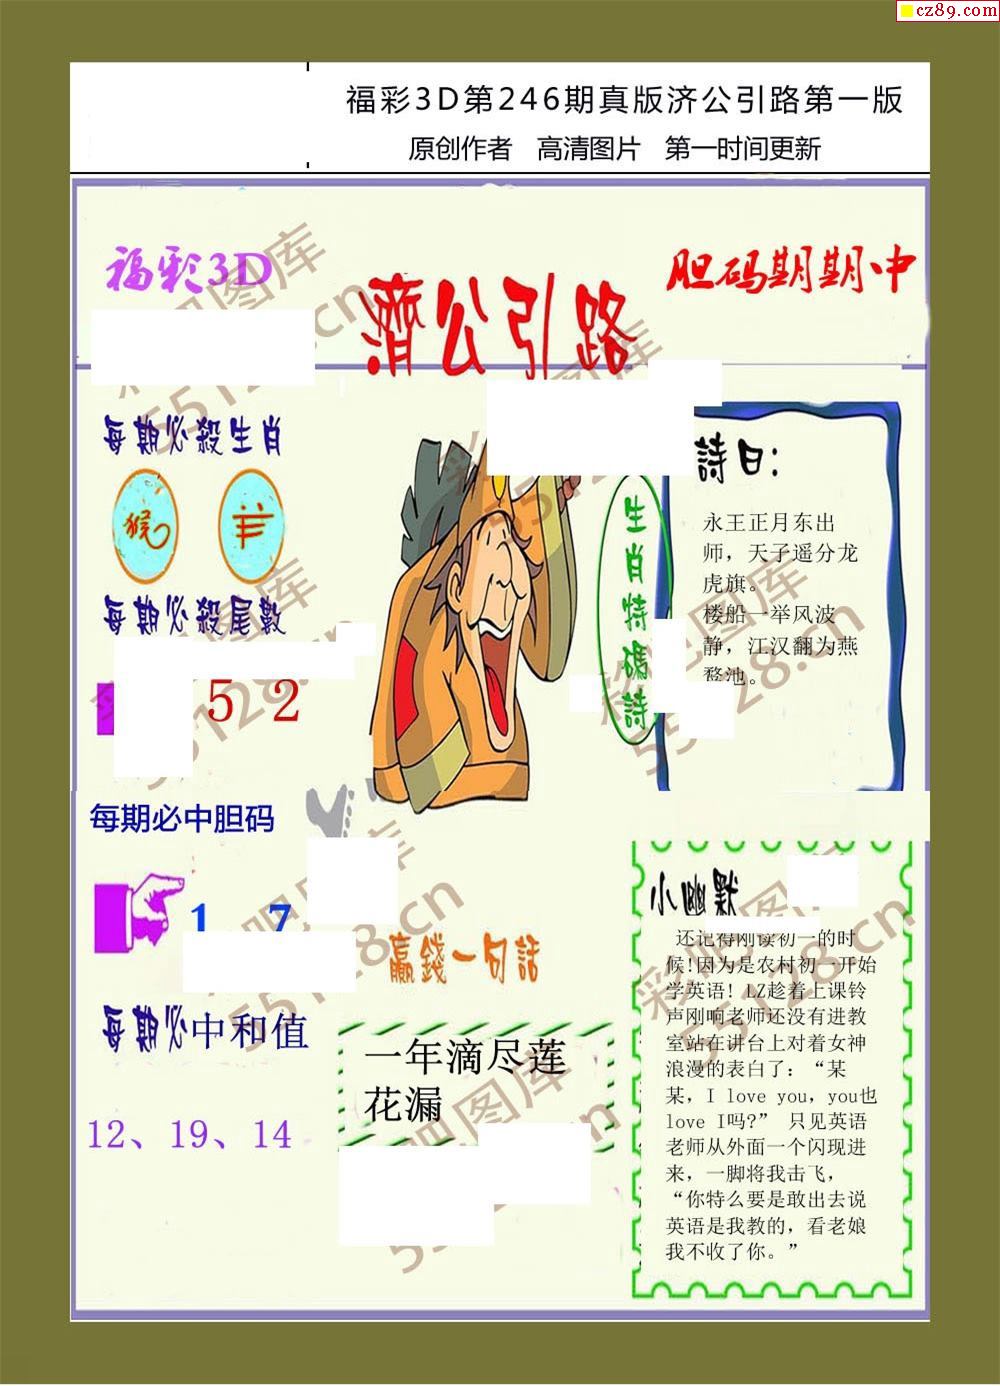 cz89.com
福彩3D第246期真版济公引路第一版
原创作者 高清图片 第一时间更新
福彩3D
胆码期期中
濟公引路
每期必殺生肖
猴 羊
每期必殺尾數
5 2
每期必中胆码
1 7
每期必中和值
12、19、14
生肖特碼詩
詩曰：
永王正月东出
师，天子遥分龙
虎旗。
楼船一举风波
静，江汉翻为燕
鹜池。
赢錢一句話
一年滴尽莲
花漏
小幽默
还记得刚读初一的时
候!因为是农村初一开始
学英语! LZ趁着上课铃
声刚响老师还没有进教
室站在讲台上对着女神
浪漫的表白了：“某
某，I love you，you也
love I吗?” 只见英语
老师从外面一个闪现进
来，一脚将我击飞，
“你特么要是敢出去说
英语是我教的，看老娘
我不收了你。”
彩吧图库
55128.cn